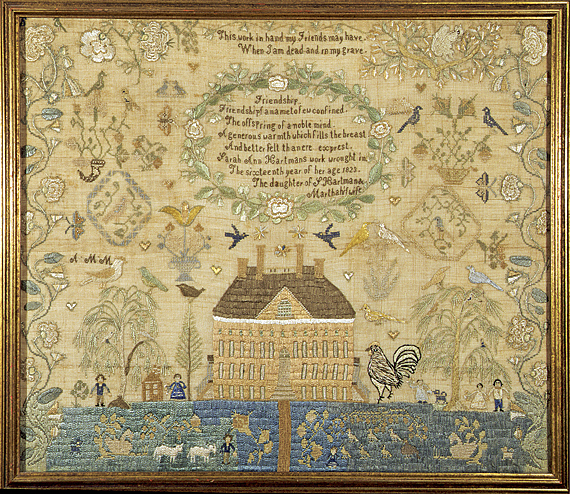 This work in hand my Friends may have
When I am dead and in my grave.
Friendship
Friendship's a name to few confined
The offspring of a noble mind
A generous warmth which fills the breast
And better felt than ere exprest.
Sarah Ann Hartmans work wrought in
The sixteenth year of her age 1823.
The daughter of Hartman &
Martha wife
A M M